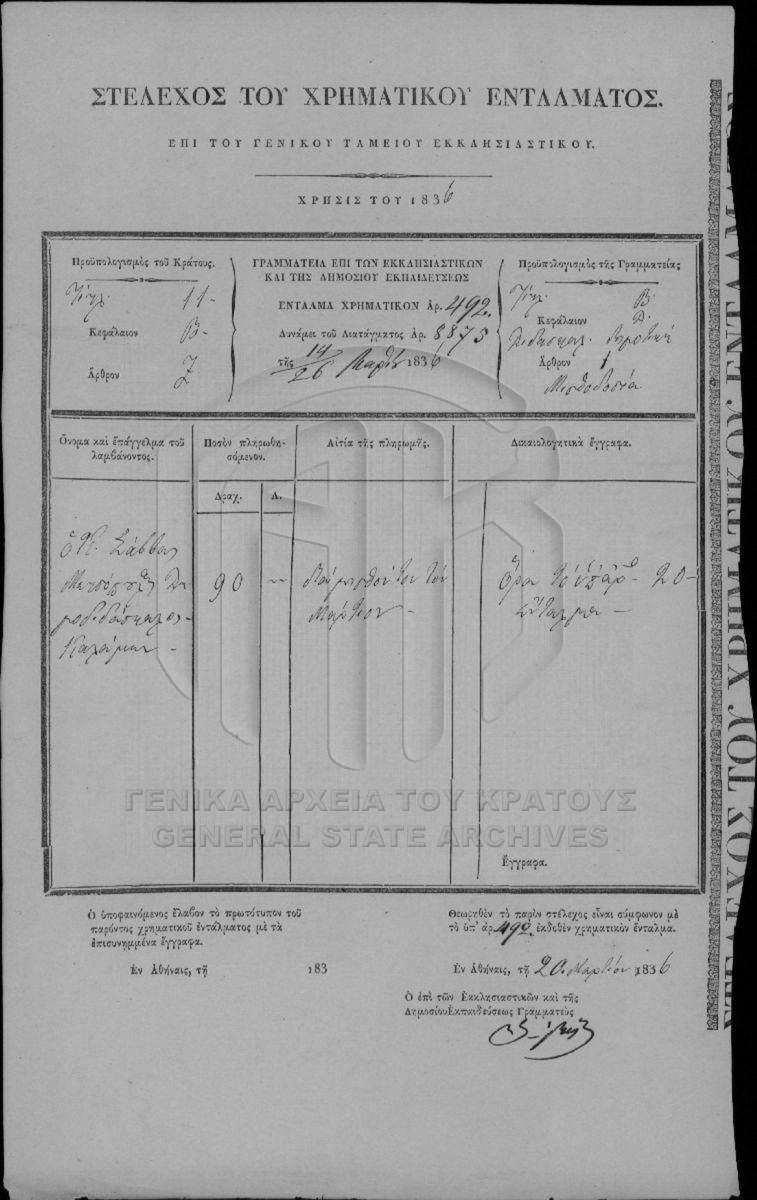 ΣΤΕΛΕΧΟΣ ΤΟΥ ΧΡΗΜΑΤΙΚΟΥ ΕΝΤΑΛΜΑΤΟΣ.
ΕΠΙ ΤΟΥ ΓΕΝΙΚΟΥ ΤΑΜΕΙΟΥ ΕΚΚΛΗΣΙΑΣΤΙΚΟΥ.
ΧΡΗΣΙΣ ΤΟΥ 1836
Προϋπολογισμὸς τοῦ Κράτους.
Τίτλ. 11-
Κεφάλαιον Β-
Ἄρθρον Ζ
ΓΡΑΜΜΑΤΕΙΑ ΕΠΙ ΤΩΝ ΕΚΚΛΗΣΙΑΣΤΙΚΩΝ
ΚΑΙ ΤΗΣ ΔΗΜΟΣΙΟΥ ΕΚΠΑΙΔΕΥΣΕΩΣ
ΕΝΤΑΛΜΑ ΧΡΗΜΑΤΙΚΟΝ ἀρ. 492.
Δυνάμει τοῦ Διατάγματος ἀρ. 8875
τῆς 14/26 Μαρτίου 1836
Προϋπολογισμὸς τῆς Γραμματείας
Τίτλ. Β.
Κεφάλαιον Δ.
Διδασκαλ. δημοτικὴ
Ἄρθρον 1
Μισθοδοσία
Ὄνομα καὶ ἐπάγγελμα τοῦ
λαμβάνοντος.
Ποσὸν πληρωθη-
σόμενον.
Δραχ.
Λ.
Αἰτία τῆς πληρωμῆς.
Δικαιολογητικὰ ἔγγραφα.
Σάββας
δημοδιδάσκαλος
Καλάμων -
90
διὰ μισθόν του τὸν
Μάρτιον -
ὅρα τὸ ὑπ' ἀρ. 20-
ἔνταλμα -
Ἔγγραφα.
ΓΕΝΙΚΑ ΑΡΧΕΙΑ ΤΟΥ ΚΡΑΤΟΥΣ
GENERAL STATE ARCHIVES
Ὁ ὑποφαινόμενος ἔλαβον τὸ πρωτότυπον τοῦ
παρόντος χρηματικοῦ ἐντάλματος μὲ τὰ
ἐπισυνημμένα ἔγγραφα.
Ἐν Ἀθήναις, τῇ 183
Θεωρηθὲν τὸ παρὸν στέλεχος εἶναι σύμφωνον μὲ
τὸ ὑπ' ἀρ. 492 ἐκδοθὲν χρηματικὸν ἔνταλμα.
Ἐν Ἀθήναις, τῇ 20 Μαρτίου 1836
Ὁ ἐπὶ τῶν Ἐκκλησιαστικῶν καὶ τῆς
Δημοσίου Ἐκπαιδεύσεως Γραμματεὺς
ΣΤΕΛΕΧΟΣ ΤΟΥ ΧΡΗΜΑΤΙΚΟΥ ΕΝΤΑΛΜΑΤΟΣ